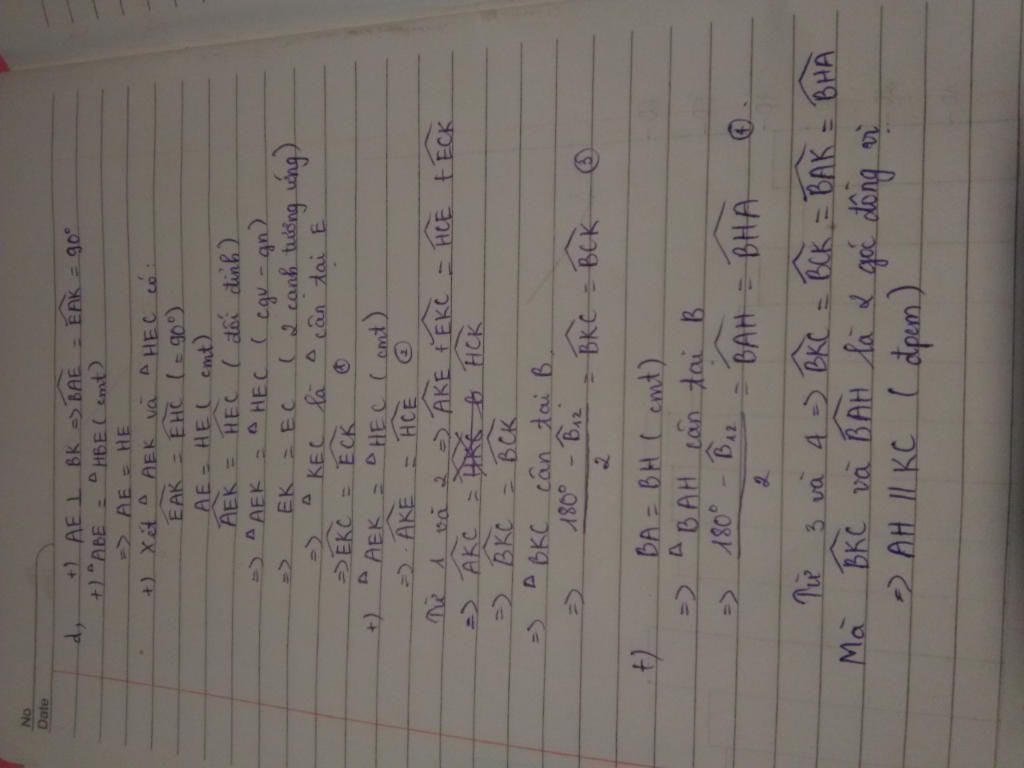 No
Date
d, +) AE ⊥ BK => \widehat{BAE} = \widehat{EAK} = 90°
+) △ABE = △HBE (cmt)
=> AE = HE
+) Xét △ AEK và △ HEC có:
\widehat{EAK} = \widehat{EHC} (= 90°)
AE = HE (cmt)
\widehat{AEK} = \widehat{HEC} (đối đỉnh)
=> △AEK = △HEC (cgv - gn)
=> EK = EC (2 cạnh tương ứng)
=> △ KEC là △ cân tại E
=> \widehat{EKC} = \widehat{ECK} ①
+) △AEK = △HEC (cmt)
=> \widehat{AKE} = \widehat{HCE} ②
Từ 1 và 2 => \widehat{AKE} + \widehat{EKC} = \widehat{HCE} + \widehat{ECK}
=> \widehat{AKC} = \widehat{HCK}
=> \widehat{BKC} = \widehat{BCK}
=> △BKC cân tại B
=> \frac{180° - \widehat{B}_{12}}{2} = \widehat{BKC} = \widehat{BCK} ③
+) BA = BH (cmt)
=> △BAH cân tại B
=> \frac{180° - \widehat{B}_{12}}{2} = \widehat{BAH} = \widehat{BHA} ④.
Từ 3 và 4 => \widehat{BKC} = \widehat{BCK} = \widehat{BAK} = \widehat{BHA}
Mà \widehat{BKC} và \widehat{BAH} là 2 góc đồng vị
=> AH // KC (đpcm)